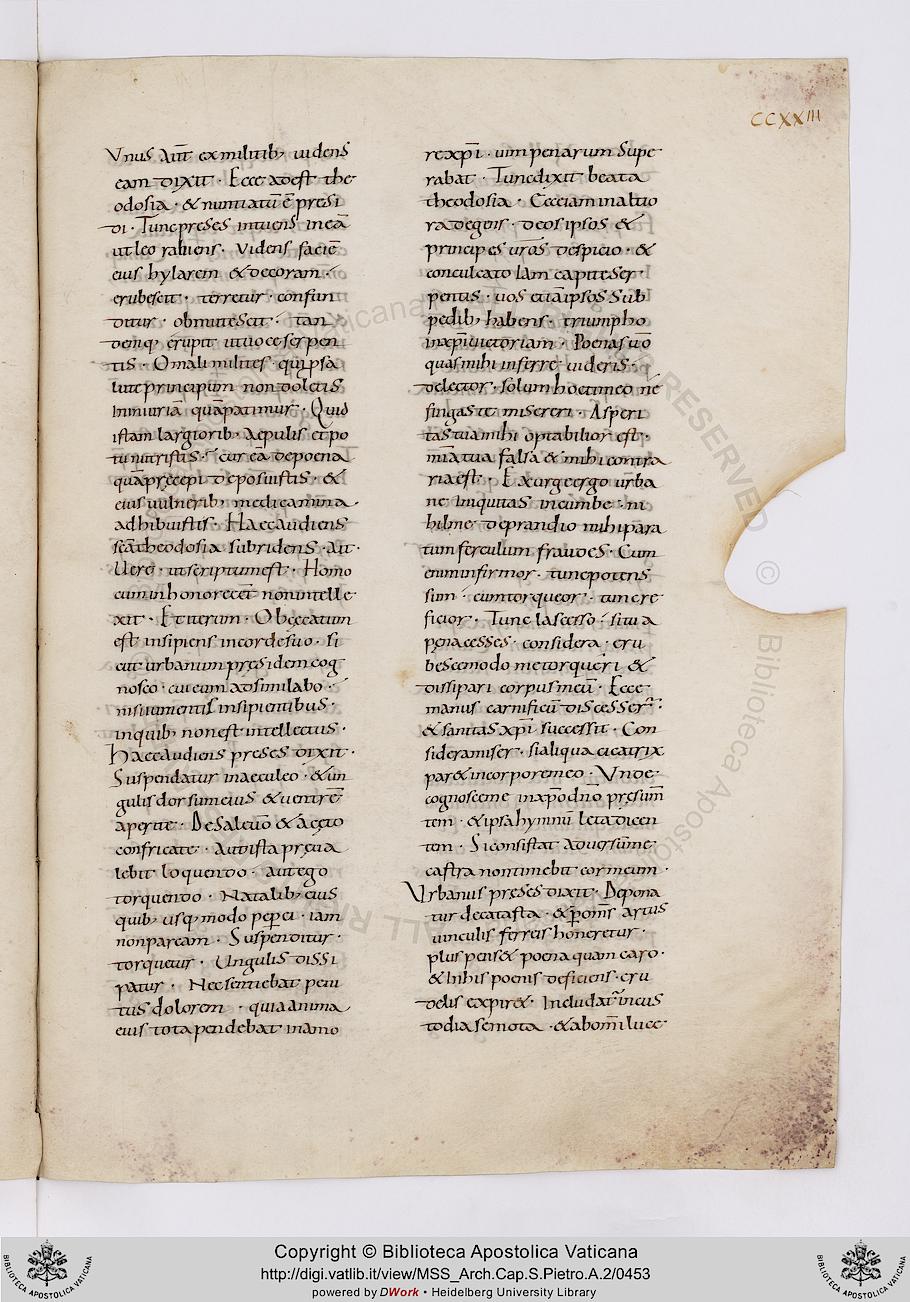 CCXXIII
Vnus aut̄ ex militib; uidens
eam dixit · Ecce adest the
odosia · & nuntiatū ē presi
di · Tunc preses intuens in eā
ut leo rabiens · Videns faciē
eius hylarem & decoram ·
erubescit · terretur · confun
ditur · obmutescit · tan
demq; erupit ut uoce serpen
tis · O mali milites · qui ipsā
lute principum non doletis
iniuriā quā patimur · Quid
istam largiorib; aepulis et po
tu nutristis · cur eā de poena
quā precepi deposuistis · &
eius uulnerib; medicamina
adhibuistis · Haec audiens
sc̄a theodosia subridens · ait ·
Uere · ut scriptum est · Homo
cum in honore cēt non intelle
xit · Et iterum · Obcecatum
est insipiens in corde suo · si
cut urbanum pręsidem cog
nosco · cui eum adsimilabo ·
nisi iumentis insipientibus ·
in quib; non est intellectus ·
Haec audiens preses dixit ·
Suspendatur in aeculeo · & un
gulis dorsum eius & uentrē
aperite · De sale uō & acęto
confricate · Aut ista pręua
lebit loquendo · aut ego
torquendo · Natalib; eius
quib; usq; modo peperci · iam
non parcam · Suspenditur ·
torquetur · Ungulis dissi
patur · Nec sentiebat peni
tus dolorem · quia anima
eius tota pendebat in amo
re xp̄i · uim penarum supe
rabat · Tunc dixit beata
theodosia · Ecce iam altio
ra degens · deos ipsos &
principes ur̄os despicio · &
conculcato iam capite ser
pentis · uos etiā ipsos sub
pedib; habens · triumpho
in xp̄i uictoriam · Poenas uō
quas mihi inferre uideris ·
delector · solum hoc timeo nē
fingas te misereri · Asperi
tas tua mihi optabilior est ·
mīa tua falsa & mihi contra
ria est · Exurge ergo urba
ne iniquitas incumbe · ni
hil me de prandio mihi para
tum ferculum fraudes · Cum
enim infirmor · tunc potens
sum · cum torqueor · tunc re
ficior · Tunc lascesso · si tu a
pęna cesses · considera · eru
besce modo me torqueri &
dissipari corpus meū · Ecce
manus carnificū discesser ·
& sanitas xp̄i successit · Con
sidera miser · si aliqua cicatrix
par& in corpore meo · Unde
cognosce me in xp̄o dn̄o pręsum
tem · & ipsa hymnū leta dicen
tem · Si consistat aduersū me
castra non timebit cor meum ·
Urbanus preses dixit · Depona
tur de catasta · & p om̄s artus
uinculis ferreis honeretur ·
plus pens& poena quam caro ·
& in his poenis deficiens · cru
delis expir& · Includat̄ in cus
todia semota · & ab om̄i luce
Copyright © Biblioteca Apostolica Vaticana
http://digi.vatlib.it/view/MSS_Arch.Cap.S.Pietro.A.2/0453
powered by DWork • Heidelberg University Library